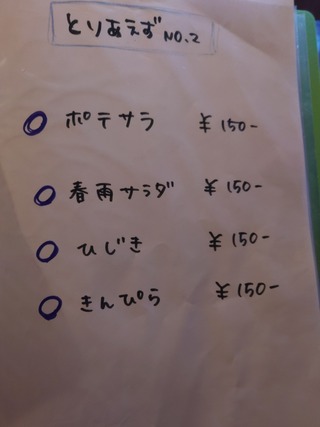 とりあえず NO.2
ポテサラ ¥150-
春雨サラダ ¥150-
ひじき ¥150-
きんぴら ¥150-